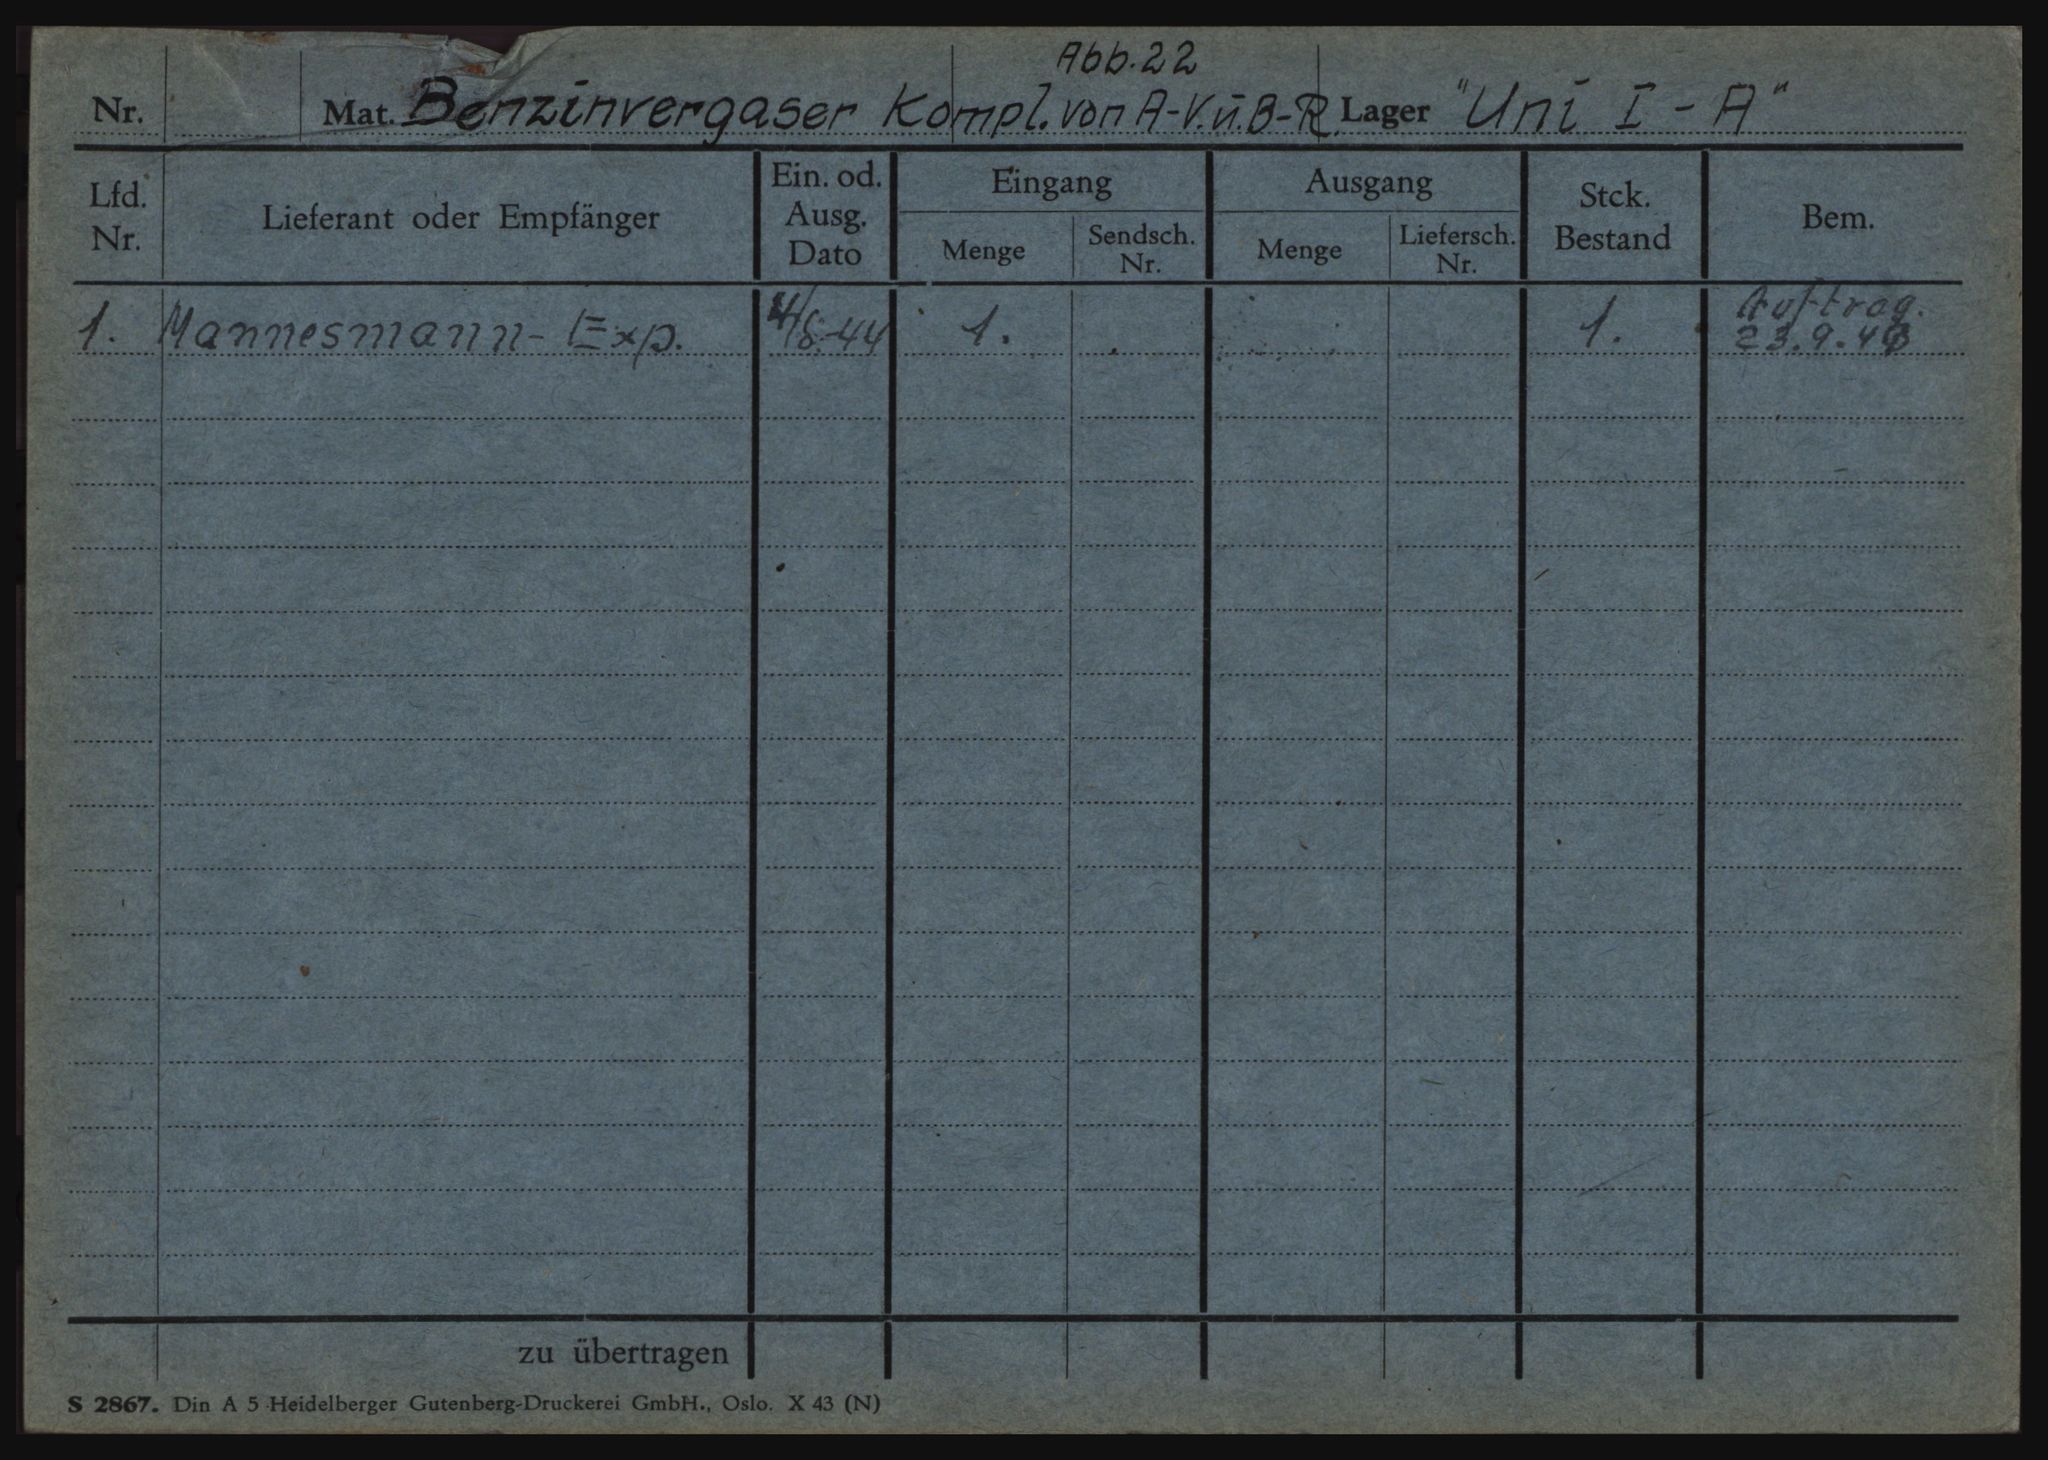 Abb. 22
Nr. Mat. Benzinvergaser Kompl. von A-V. u. B-R. Lager "Uni I - A"
Lfd. Nr. Lieferant oder Empfänger Ein. od. Ausg. Dato Eingang Menge Sendsch. Nr. Ausgang Menge Liefersch. Nr. Stck. Bestand Bem.
1. Mannesmann-Exp. 4/8.44 1. 1. Auftrag. 23.9.43
zu übertragen
S 2867. Din A 5 Heidelberger Gutenberg-Druckerei GmbH., Oslo. X 43 (N)